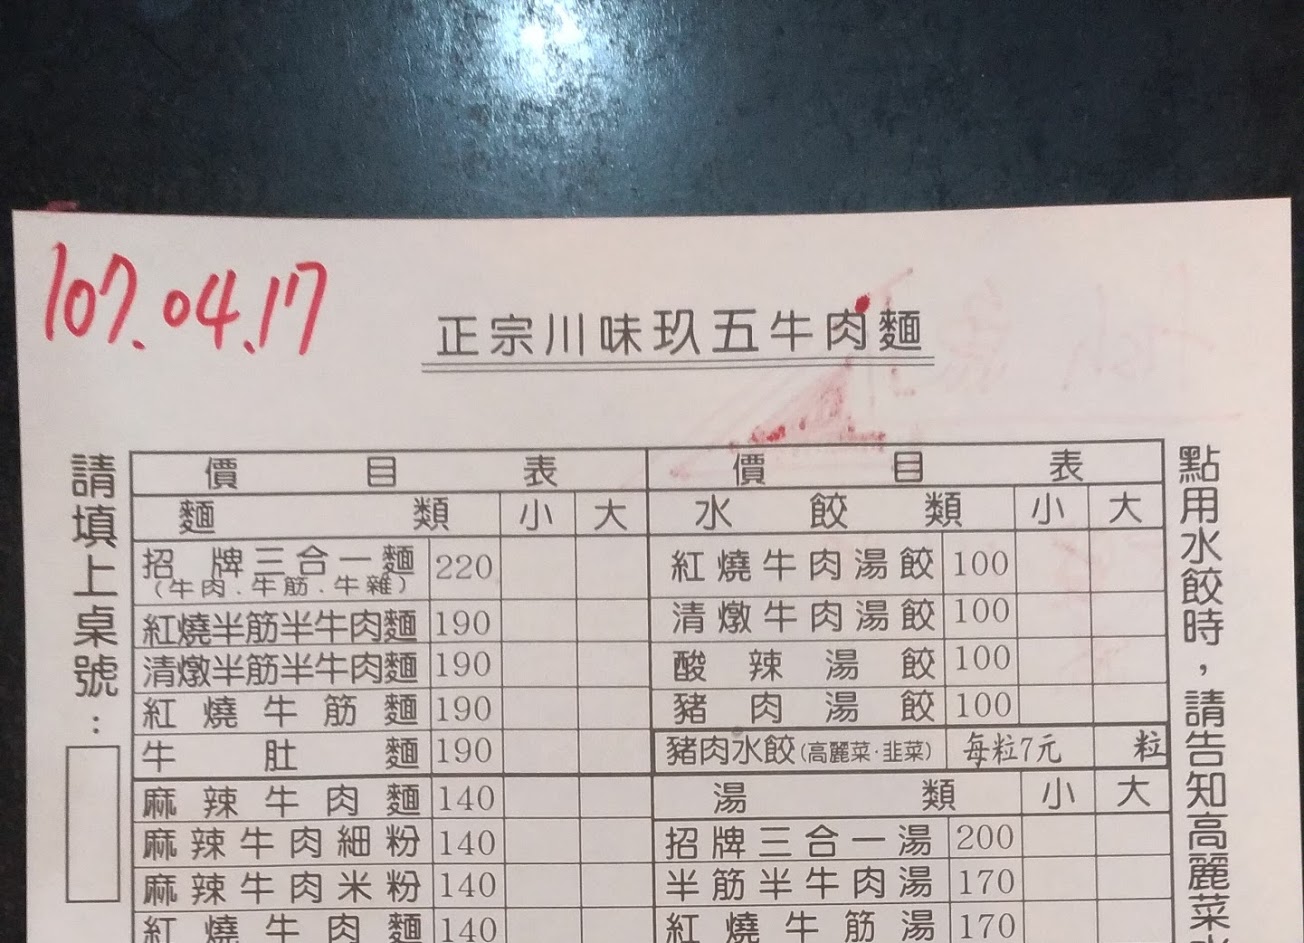 107.04.17
正宗川味玖五牛肉麵
請填上桌號：
價目表
麵類 小 大
招牌三合一麵 220
（牛肉．牛筋．牛雜）
紅燒半筋半牛肉麵 190
清燉半筋半牛肉麵 190
紅燒牛筋麵 190
牛肚麵 190
麻辣牛肉麵 140
麻辣牛肉細粉 140
麻辣牛肉米粉 140
紅燒牛肉麵 140
價目表
水餃類 小 大
紅燒牛肉湯餃 100
清燉牛肉湯餃 100
酸辣湯餃 100
豬肉湯餃 100
豬肉水餃(高麗菜·韭菜) 每粒7元 粒
湯類 小 大
招牌三合一湯 200
半筋半牛肉湯 170
紅燒牛筋湯 170
點用水餃時，請告知高麗菜